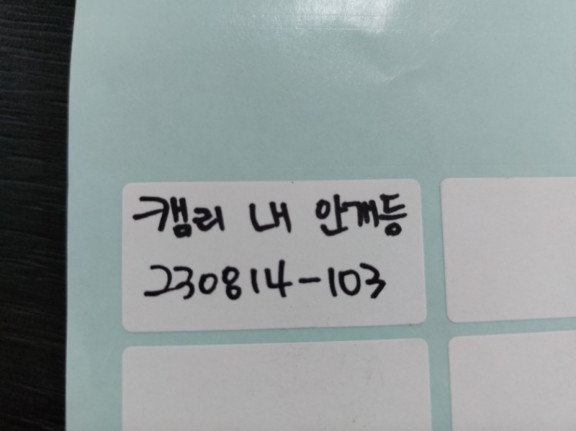 캠리 내 안개등
230814-103